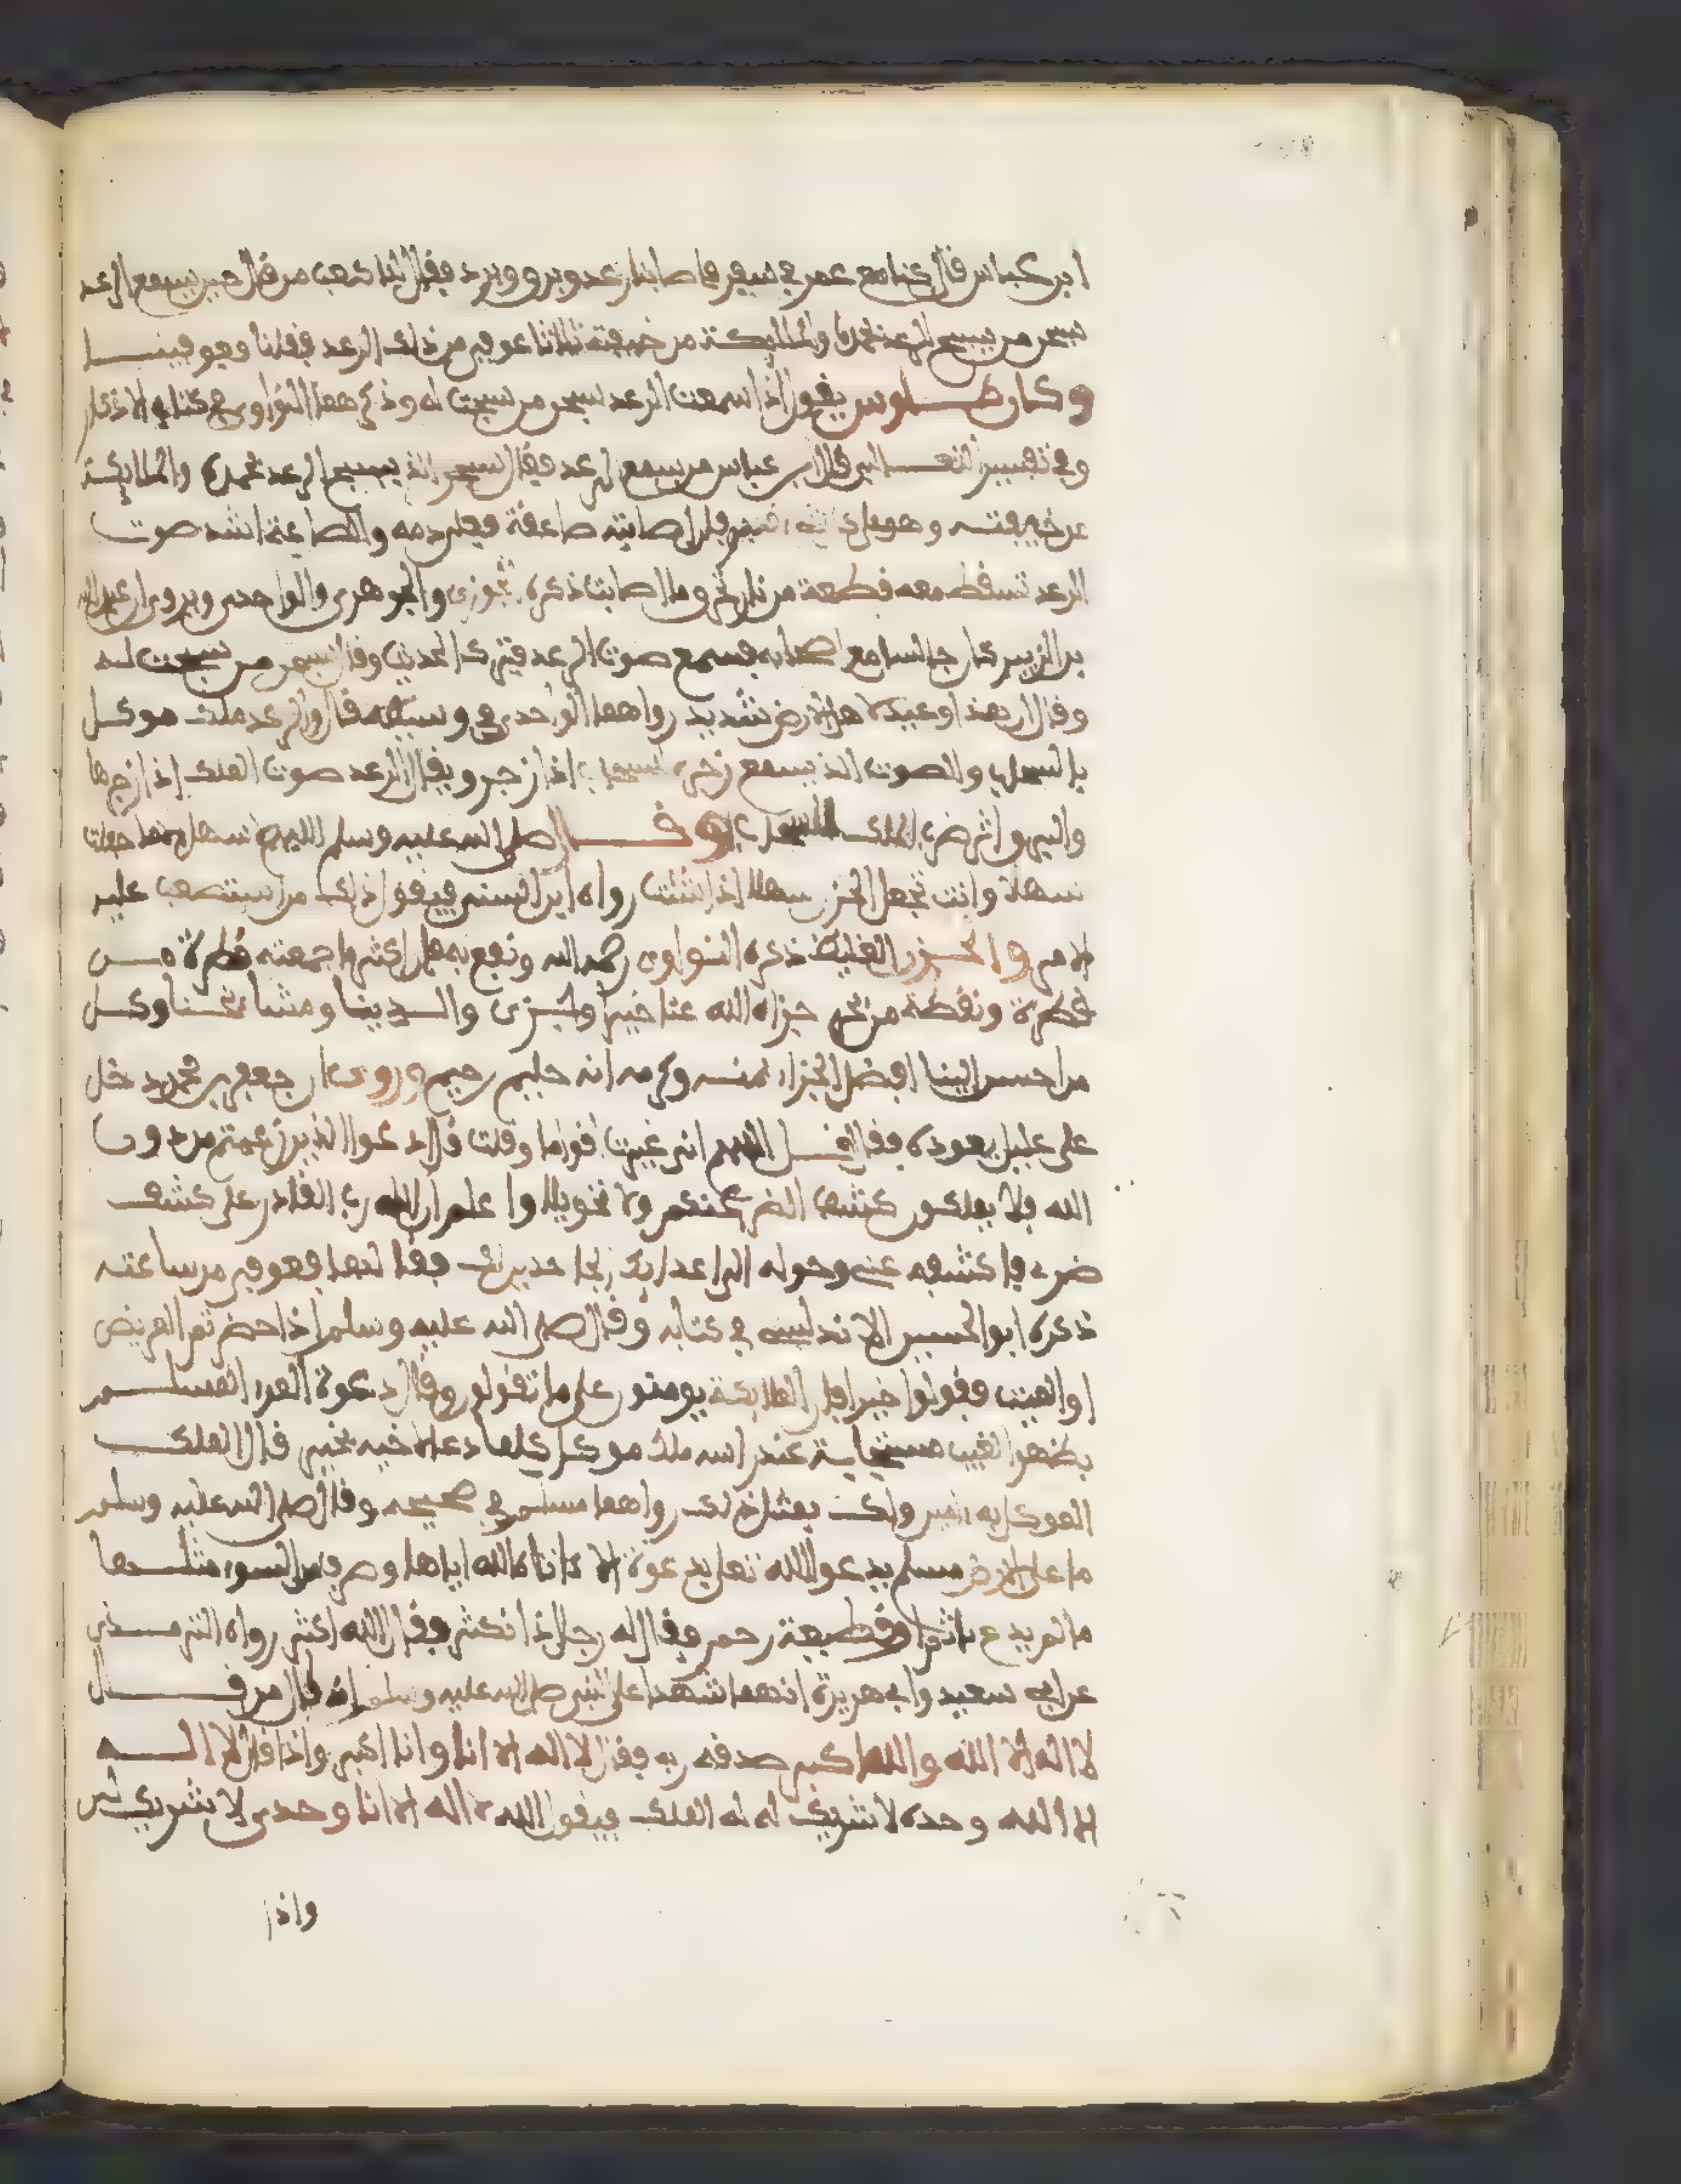 ابن عباس قال كنا مع عمر في سفر فاصابنا رعد وبرو وبرد فقال لنا كعب من قال حين يسمع الرعد
سبحن من يسبح الرعد بحمده والملايكة من خيفته ثلاثا عوفي من ذلك الرعد فقلنا فعوفينا
وكان طاوس يقول اذا سمعت الرعد سبحن من سبحت له وذكر هما النواوي في كتابه الاذكار
وفي تفسير قال ابن عباس من سمع الرعد فقال سبحن الذ يسبح الرعد بحمده والملايكة
من خيفته وهو على فان اصابته صاعقة فعلي دمه والصاعقة اشد صوت
الرعد تسقط معه قطعة من نار تحرو ما اصابت ذكره والجوهري والواحدي ويروى ان عبد الله
بن الزبير كان جالسا مع اصحابه فسمع صوت الرعد فترك الحديث وقال سبحن من سبحت له
وقال ان هذا وعيد لاهل الارض شديد رواهما الواحدي في وسيطه قال والرعد ملك موكل
بالسحاب والصوت الذ يسمع زجره السحاب اذا زجر ويقال الرعد صوت الملك اذا زجرها
والبرو اثر ضرب الملك السحاب وقال صلى الله عليه وسلم اللهم لا سهل الا ما جعلت
سهلا وانت تجعل الحزن سهلا اذا شئت رواه ابن السني فيقول ذلك من استصعب عليه
الامر والحزن الغليظ ذكره النواوي رحمه الله ونفع به هل اكثر ما جمعته قطرة من
قطرة ونقطة من بحر جزاه الله عنا خيرا وجزى والدينا ومشائخنا وكل
من احسن الينا افضل الجزاء بمنه وكرمه انه حليم رحيم وروى ان جعفر بن محمد دخل
على عليل يعوده فقال قل اللهم انك عيرت اقواما وقلت قل ادعوا الذين زعمتم من دون
الله فلا يملكون كشف الضر عنكم ولا تحويلا واعلم ان الله رب القادر على كشف
ضره فاكشفه عني وحوله الى اعدايك الجاحدين لك فقالها فعوفي من ساعته
ذكره ابو الحسن الاندلسي في كتابه وقال صلى الله عليه وسلم اذا حضرتم المريض
او الميت فقولوا خيرا فان الملايكة يومنون على ما تقولون وقال دعوة المرء المسلم
بظهر الغيب مستجابة عند راسه ملك موكل كلما دعا لاخيه بخير قال الملك
الموكل به امين ولك بمثل ذلك رواهما مسلم في صحيحه وقال صلى الله عليه وسلم
ما على الارض مسلم يدعو الله تعلى بدعوة الا اتاه الله اياها وصرف من السوء مثلها
ما لم يدع باثم او قطيعة رحم فقال له رجل اذا نكثر فقال الله اكثر رواه الترمذي
عن ابي سعيد وابي هريرة انهما شهدا على النبي صلى الله عليه وسلم انه قال من قال
لا اله الا الله والله اكبر صدقه ربه فقال لا اله الا انا وانا اكبر واذا قال لا اله
الا الله وحده لا شريك له له الملك فيقول الله لا اله الا انا وحدي لا شريك لي
واذا